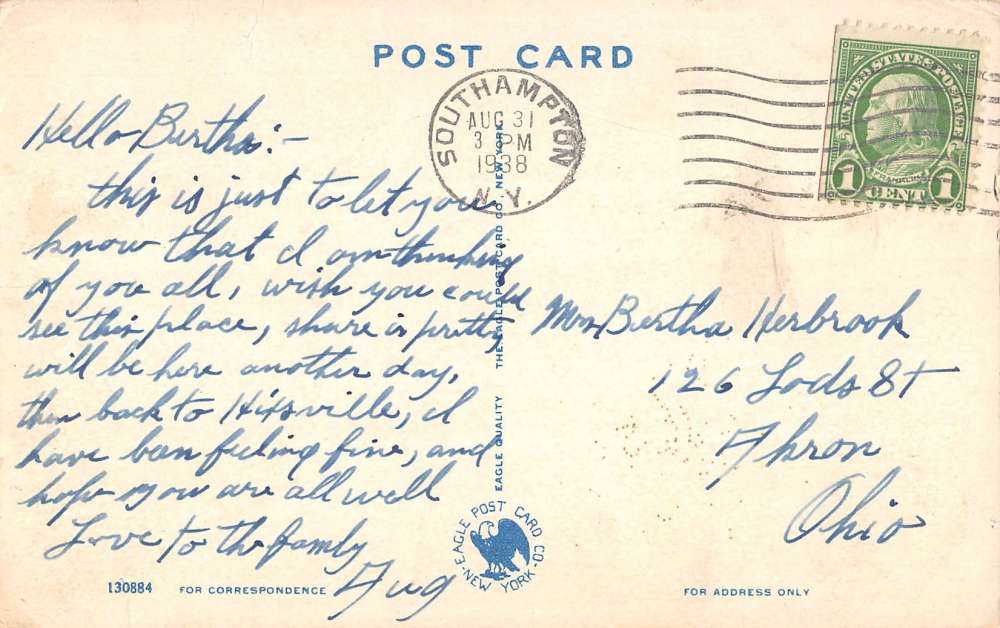 POST CARD
SOUTHAMPTON
AUG 31
3 PM
1938
N.Y.
UNITED STATES POSTAGE
FRANKLIN
1 CENT 1
Hello Bertha:-
this is just to let you
know that I am thinking
of you all, wish you could
see this place, shure is pretty,
will be here another day,
then back to Hixsville, I
have ben feeling fine, and
hope you are all well
Love to the famly
Aug
Mrs Bertha Herbrook
126 Lods St
Akron
Ohio
EAGLE QUALITY THE EAGLE POST CARD CO. NEW YORK
EAGLE POST CARD CO.
NEW YORK
130884 FOR CORRESPONDENCE
FOR ADDRESS ONLY